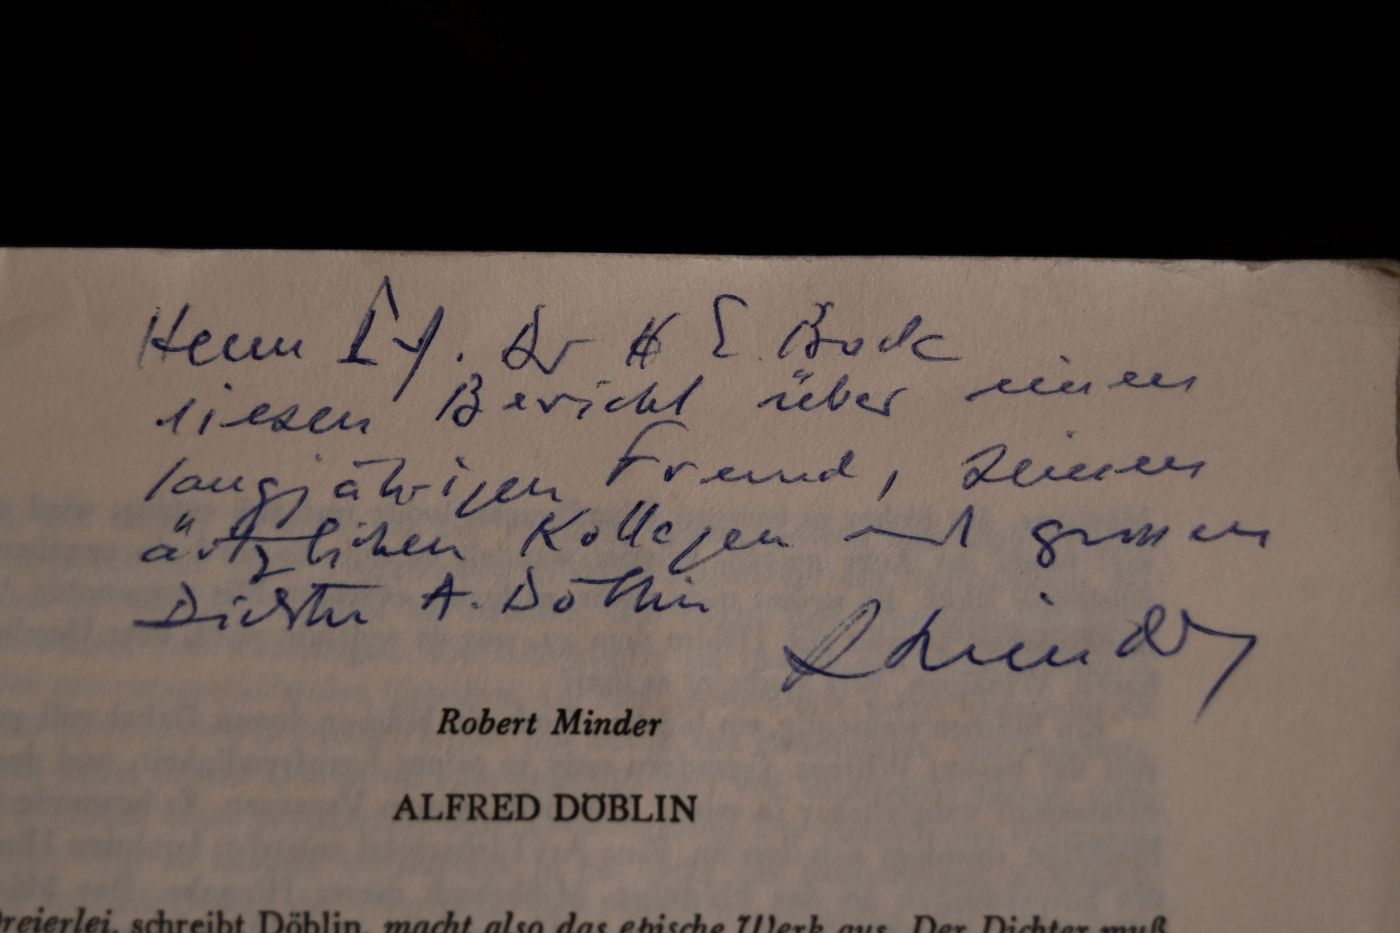 Herrn Prof. Dr H E. Bock
diesen Bericht über einen
langjährigen Freund, seinen
ärtzlichen Kollegen und grossen
Dichter A. Döblin
R Minder
Robert Minder
ALFRED DÖBLIN
Dreierlei, schreibt Döblin, macht also das epische Werk aus. Der Dichter muß